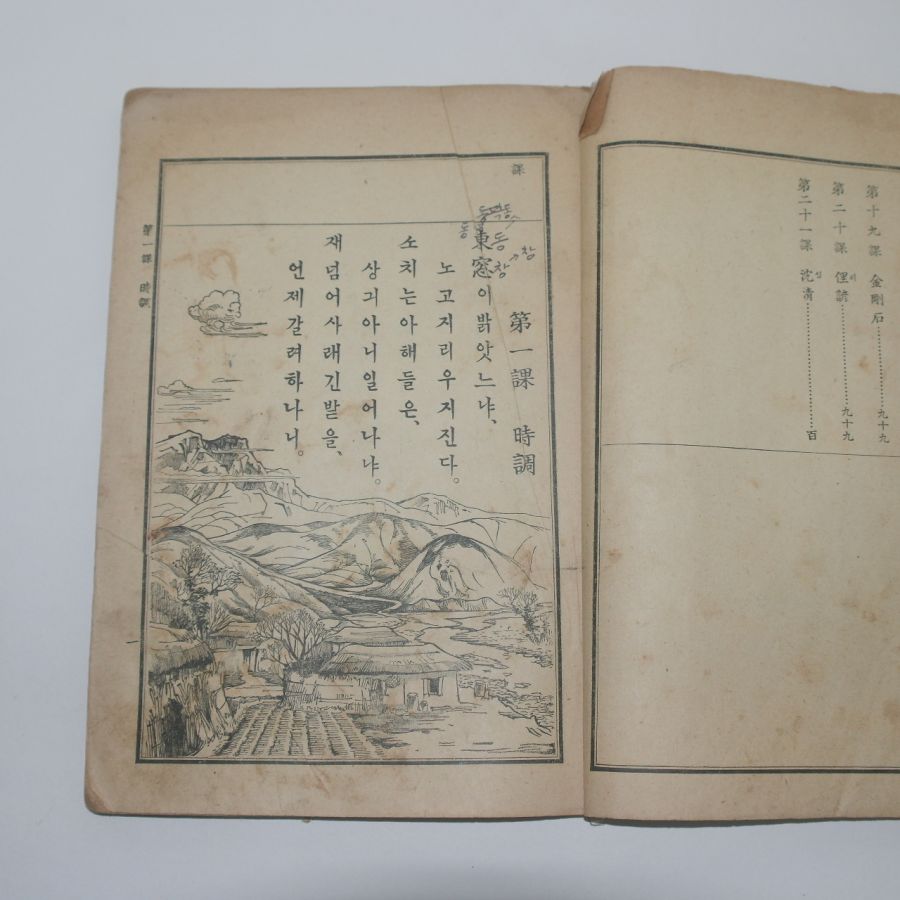 第十九課 金剛石………九十九
第二十課 俚諺………九十九
第二十一課 沈淸………百
課
第一課 時調
東窓이밝앗느냐、
노고지리우지진다。
소치는아해들은、
상긔아니일어나냐。
재넘어사래긴밭을、
언제갈려하나니。
동창
동
창
第一課 時調